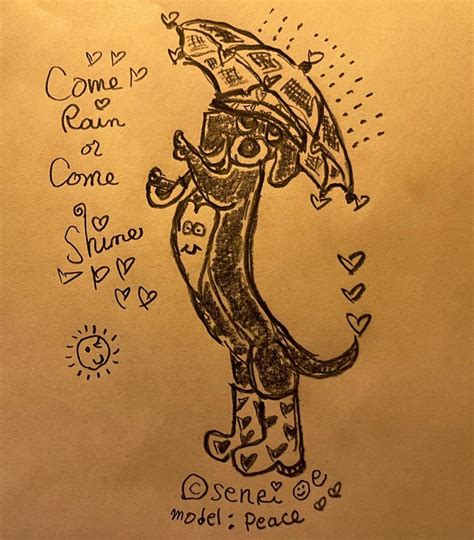 Come
Rain
or
Come
Shine
© senri oe
model: Peace